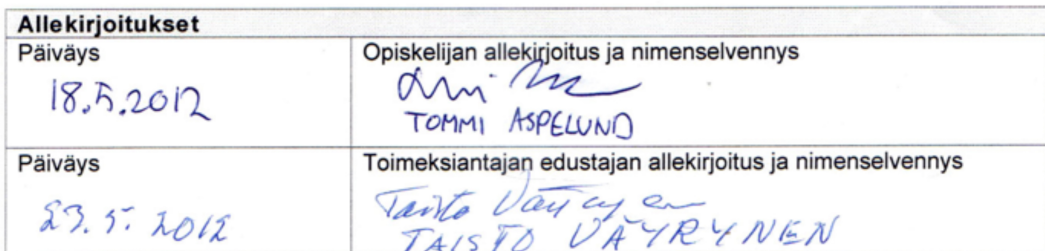 Allekirjoitukset
Päiväys
Opiskelijan allekirjoitus ja nimenselvennys
18.5.2012
TOMMI ASPELUND
Päiväys
Toimeksiantajan edustajan allekirjoitus ja nimenselvennys
23.5.2012
Taisto Väyrynen
TAISTO VÄYRYNEN